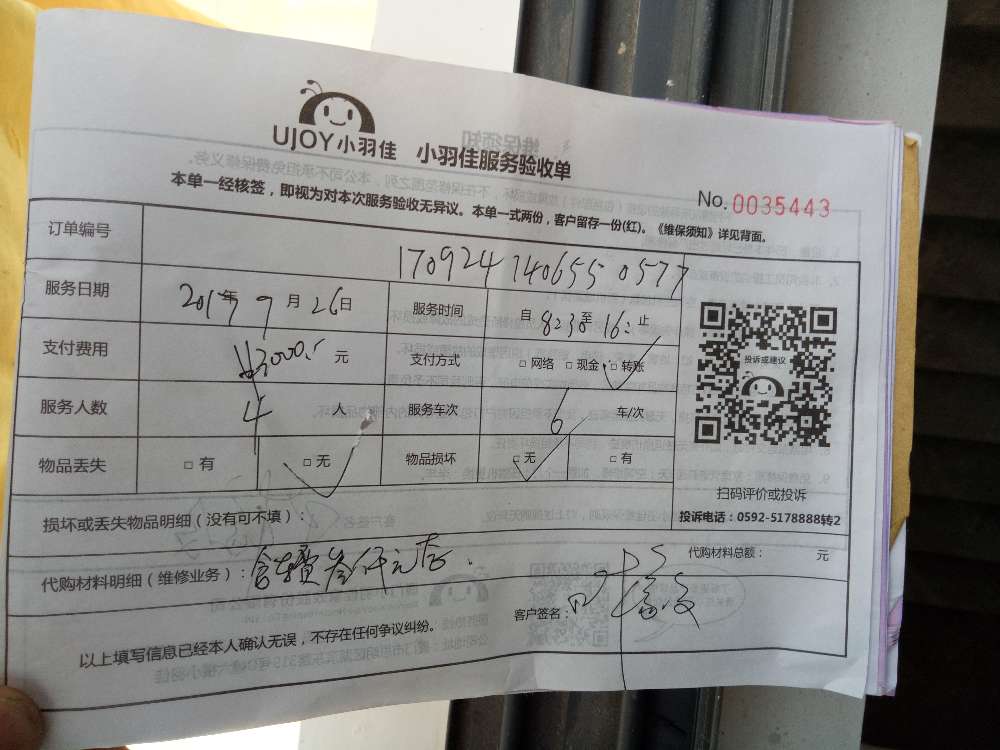 UJOY小羽佳 小羽佳服务验收单
本单一经核签，即视为对本次服务验收无异议。本单一式两份，客户留存一份(红)。《维保须知》详见背面。
No. 0035443
订单编号 170924 140655 0577
服务日期 2017年9月26日 服务时间 自8:30至16:止
支付费用 ¥3000. 元 支付方式 □ 网络 □ 现金 □ 转账
服务人数 4 人 服务车次 6 车/次
物品丢失 □ 有 □ 无 物品损坏 □ 无 □ 有
投诉或建议
扫码评价或投诉
投诉电话：0592-5178888转2
损坏或丢失物品明细（没有可不填）：
代购材料明细（维修业务）：
代购材料总额： 元
客户签名：
以上填写信息已经本人确认无误，不存在任何争议纠纷。